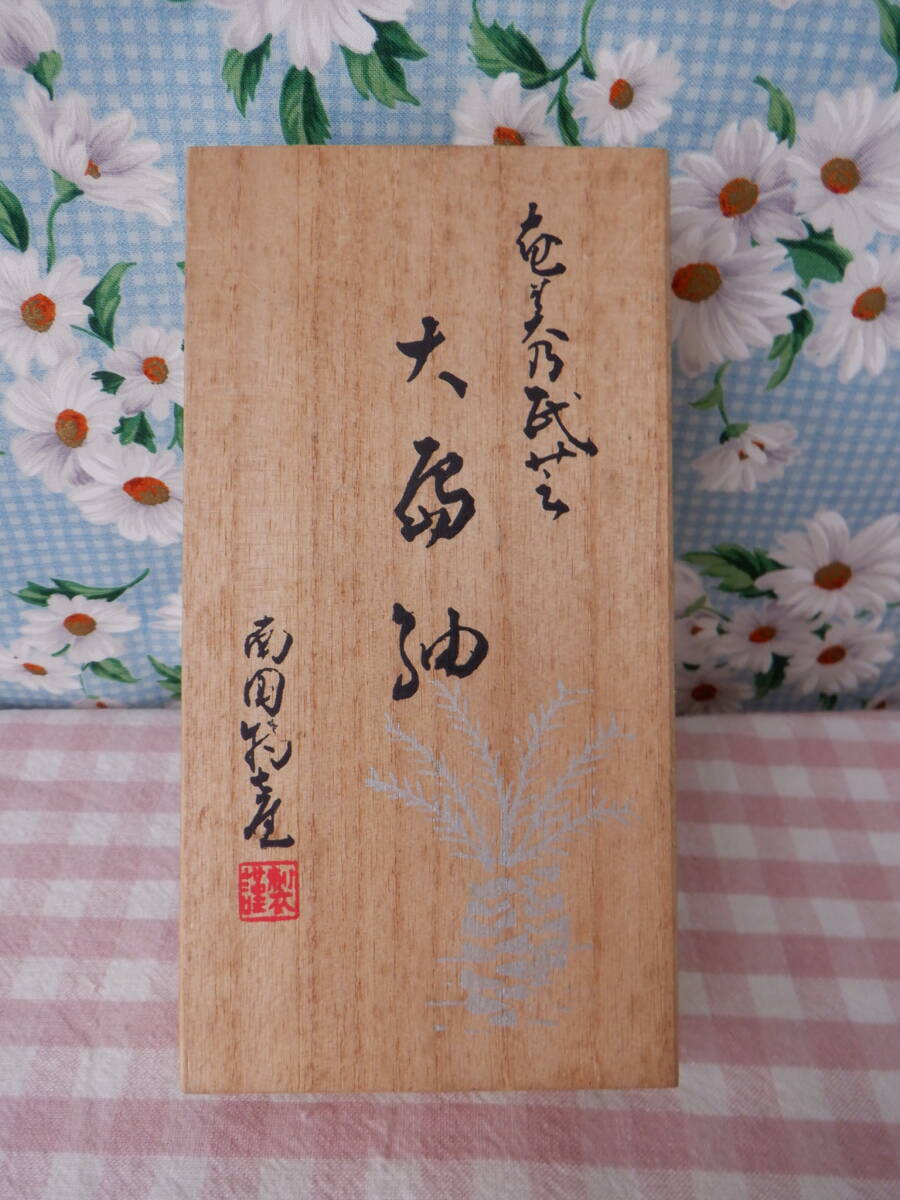 奄美乃民芸
大島紬
南国特産
謹製